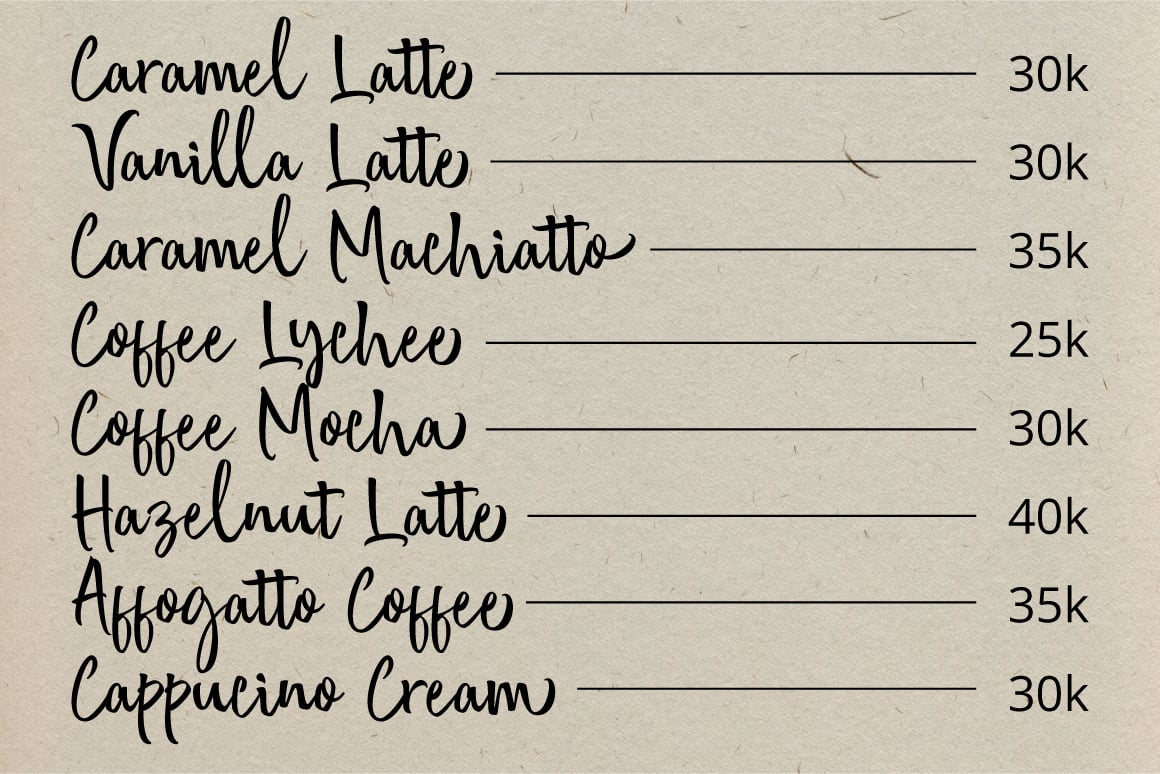 Caramel Latte 30k
Vanilla Latte 30k
Caramel Machiatto 35k
Coffee Lychee 25k
Coffee Mocha 30k
Hazelnut Latte 40k
Affogatto Coffee 35k
Cappucino Cream 30k